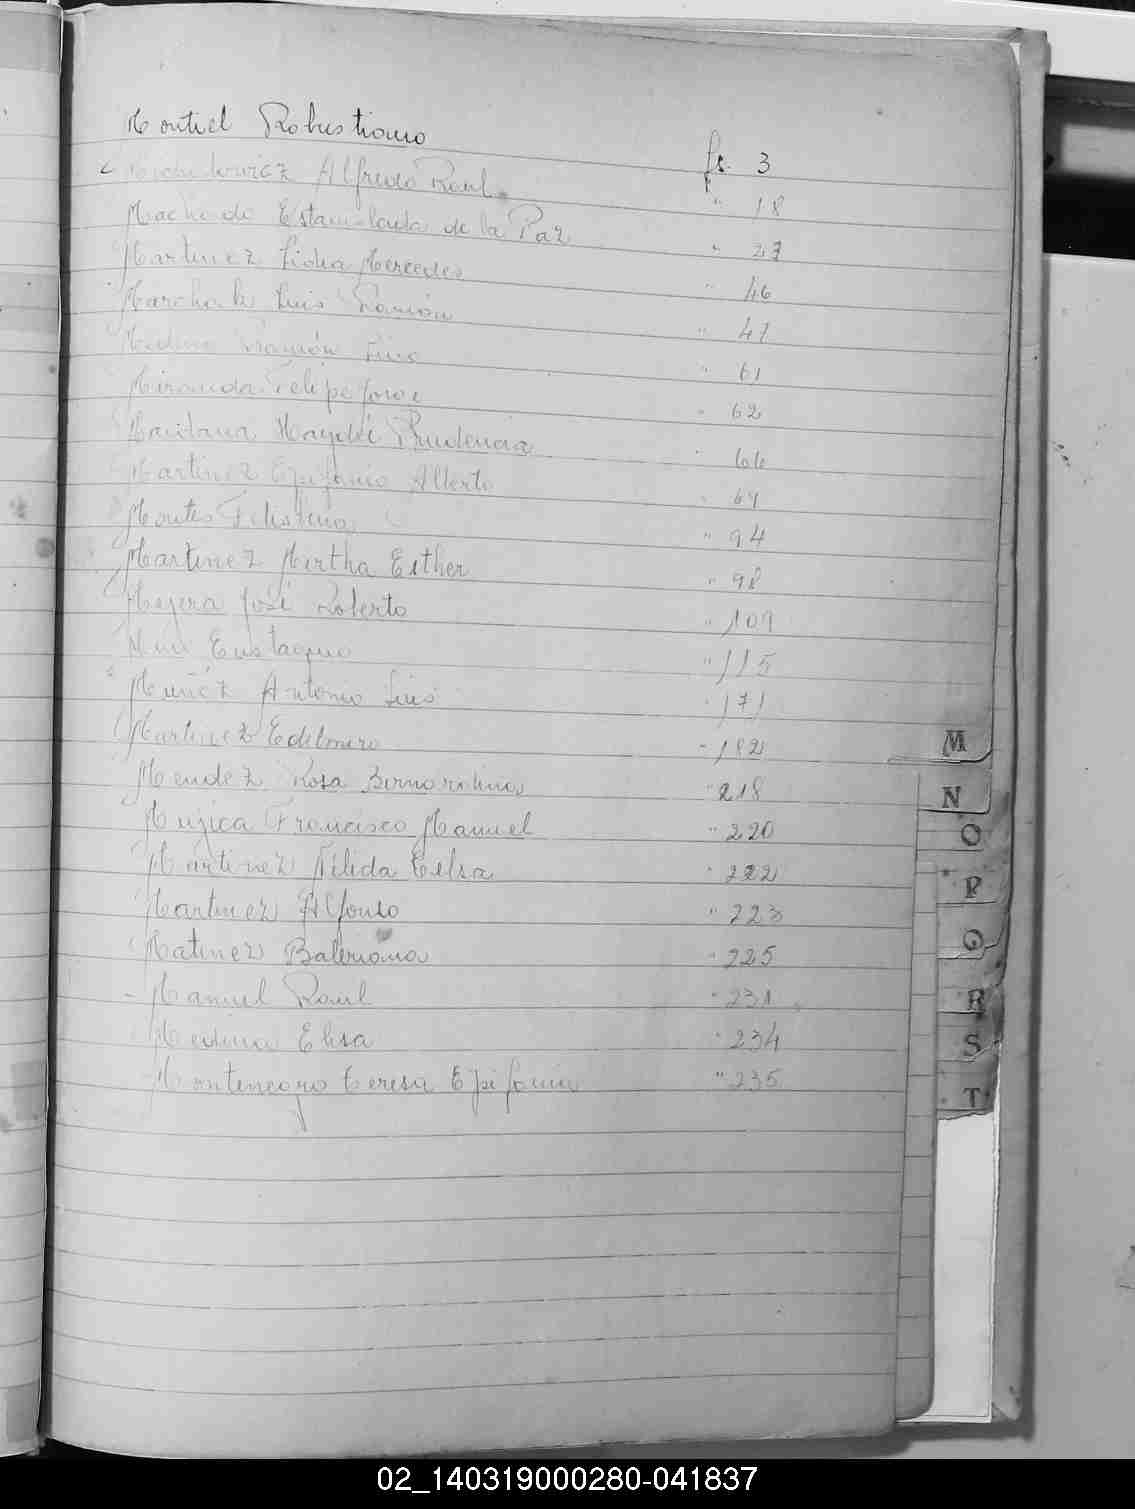 Montiel Robustiano fs. 3
Alfredo Raul " 18
Machado Estanislada de la Paz " 27
Martinez Lidia Mercedes " 46
Marchak Luis Ramón " 47
Medina Ramón Luis " 61
Miranda Felipe Jorge " 62
Maidana Haydée Prudencia " 66
Martinez Epifanio Alberto " 69
Montes Filisbino " 94
Martinez Mirtha Esther " 98
Mejera José Roberto " 109
Eustaquio " 115
Muñoz Antonio Luis " 171
Martinez Edelmiro " 182
Mendez Rosa Bernardina " 218
Mujica Francisco Manuel " 220
Martinez Nélida Elsa " 222
Martinez Alfonso " 223
Matinez Baleriana " 225
Manuel Raul " 231
Medina Elisa " 234
Montenegro Teresa Epifania " 235
M
N
O
P
Q
R
S
T
02_140319000280-041837